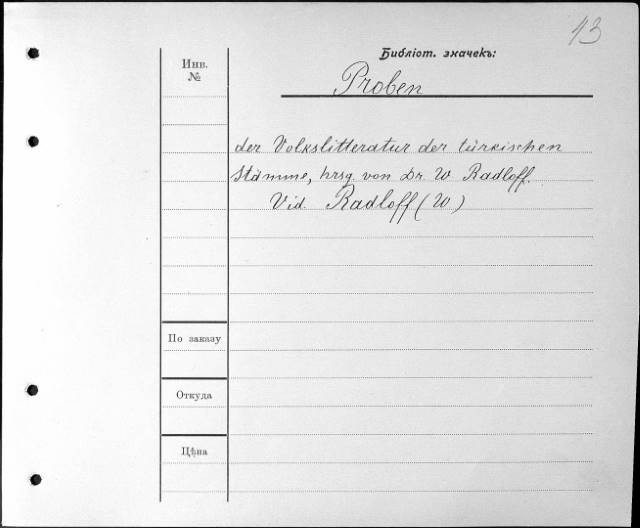 13
Библіот. значекъ:
Инв.
№
Proben
der Volkslitteratur der türkischen
Stämme, hrsg. von Dr. W Radloff.
Vid. Radloff (W)
По заказу
Откуда
Цѣна